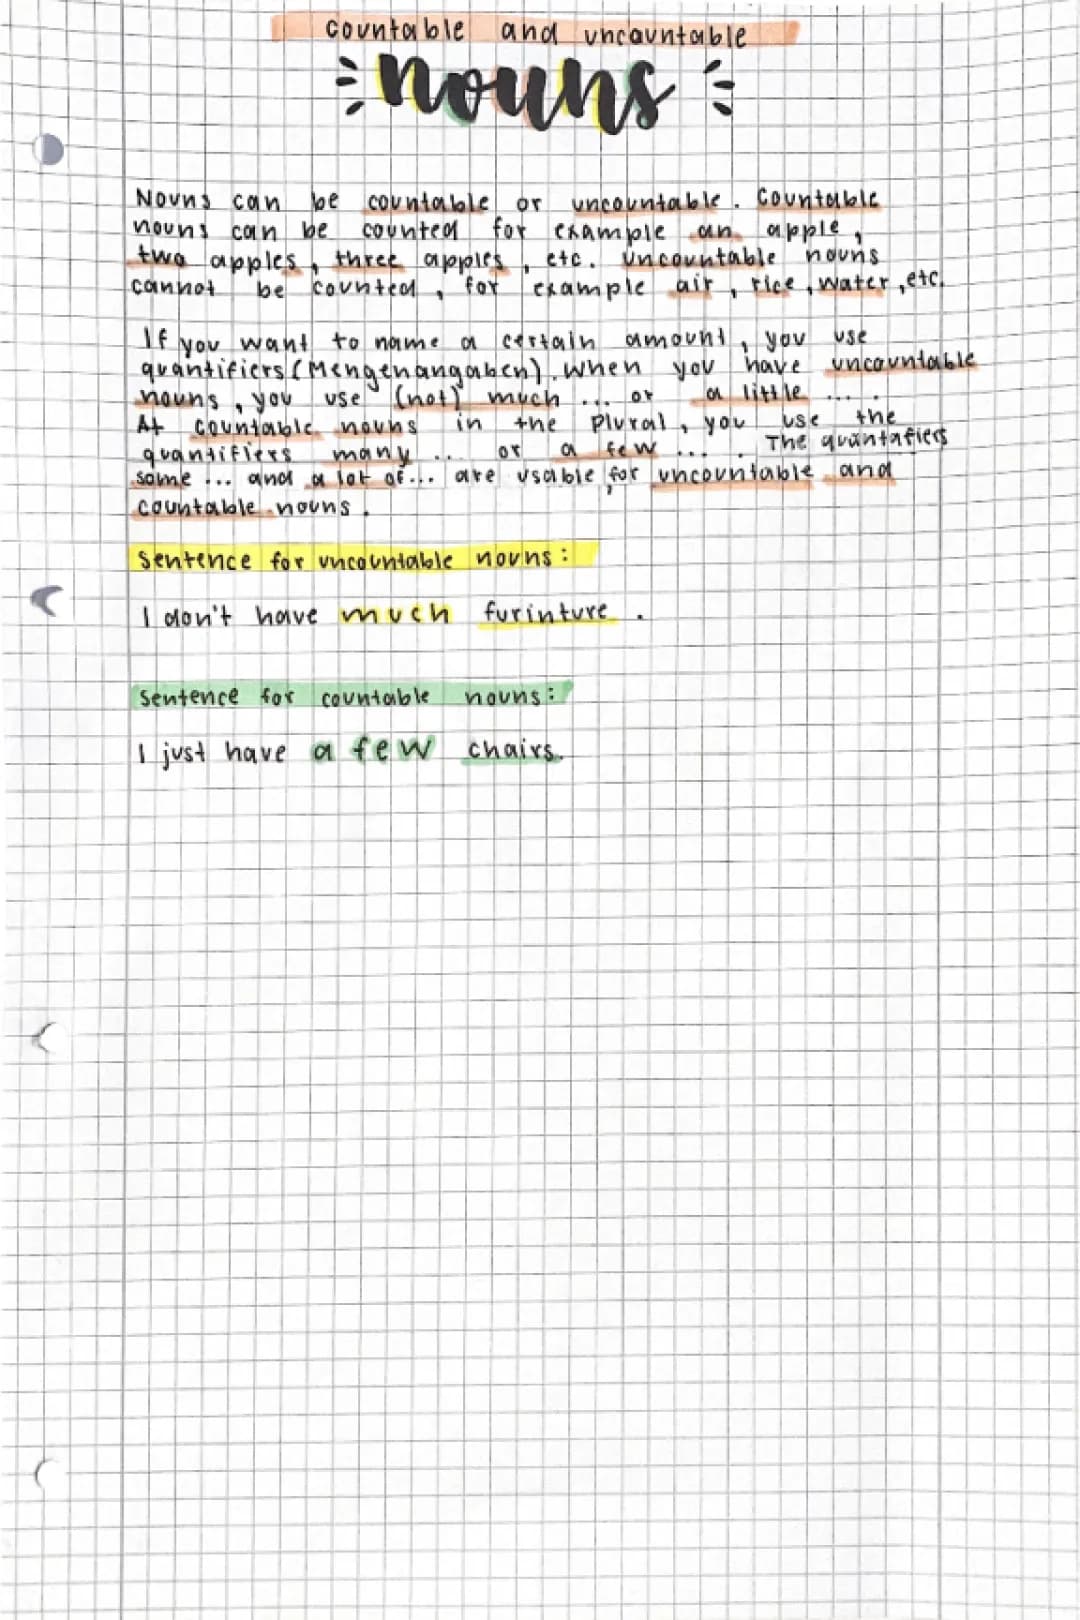 countable and uncountable
nouns
Nouns can be countable or uncountable. Countable
nouns can be counted for example an apple,
two apples, three apples, etc. Uncountable nouns
cannot be counted, for example air, rice, water, etc.
If you want to name a certain amount, you use
quantifiers (Mengenangaben). When you have uncountable
nouns, you use (not) much ... or a little ... .
At countable nouns in the plural, you use the
quantifiers many ... or a few ... . The quantafiers
some ... and a lot of... are usable for uncountable and
countable nouns.
Sentence for uncountable nouns:
I don't have much furinture.
Sentence for countable nouns:
I just have a few chairs.